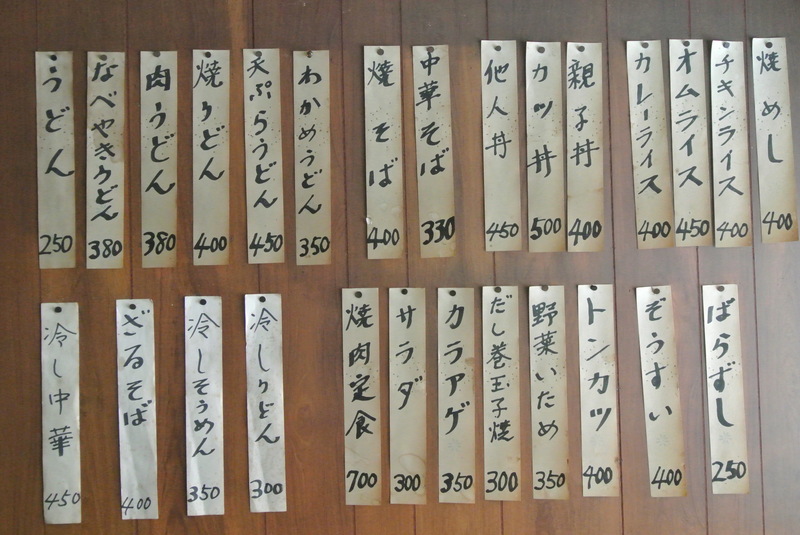 焼めし 400
チキンライス 400
オムライス 450
カレーライス 400
親子丼 400
カツ丼 500
他人丼 450
中華そば 330
焼そば 400
わかめうどん 350
天ぷらうどん 450
焼うどん 400
肉うどん 380
なべやきうどん 380
うどん 250
ばらずし 250
ぞうすい 400
トンカツ 400
野菜いため 350
だし巻玉子焼 300
カラアゲ 350
サラダ 300
焼肉定食 700
冷しうどん 300
冷しそうめん 350
ざるそば 400
冷し中華 450